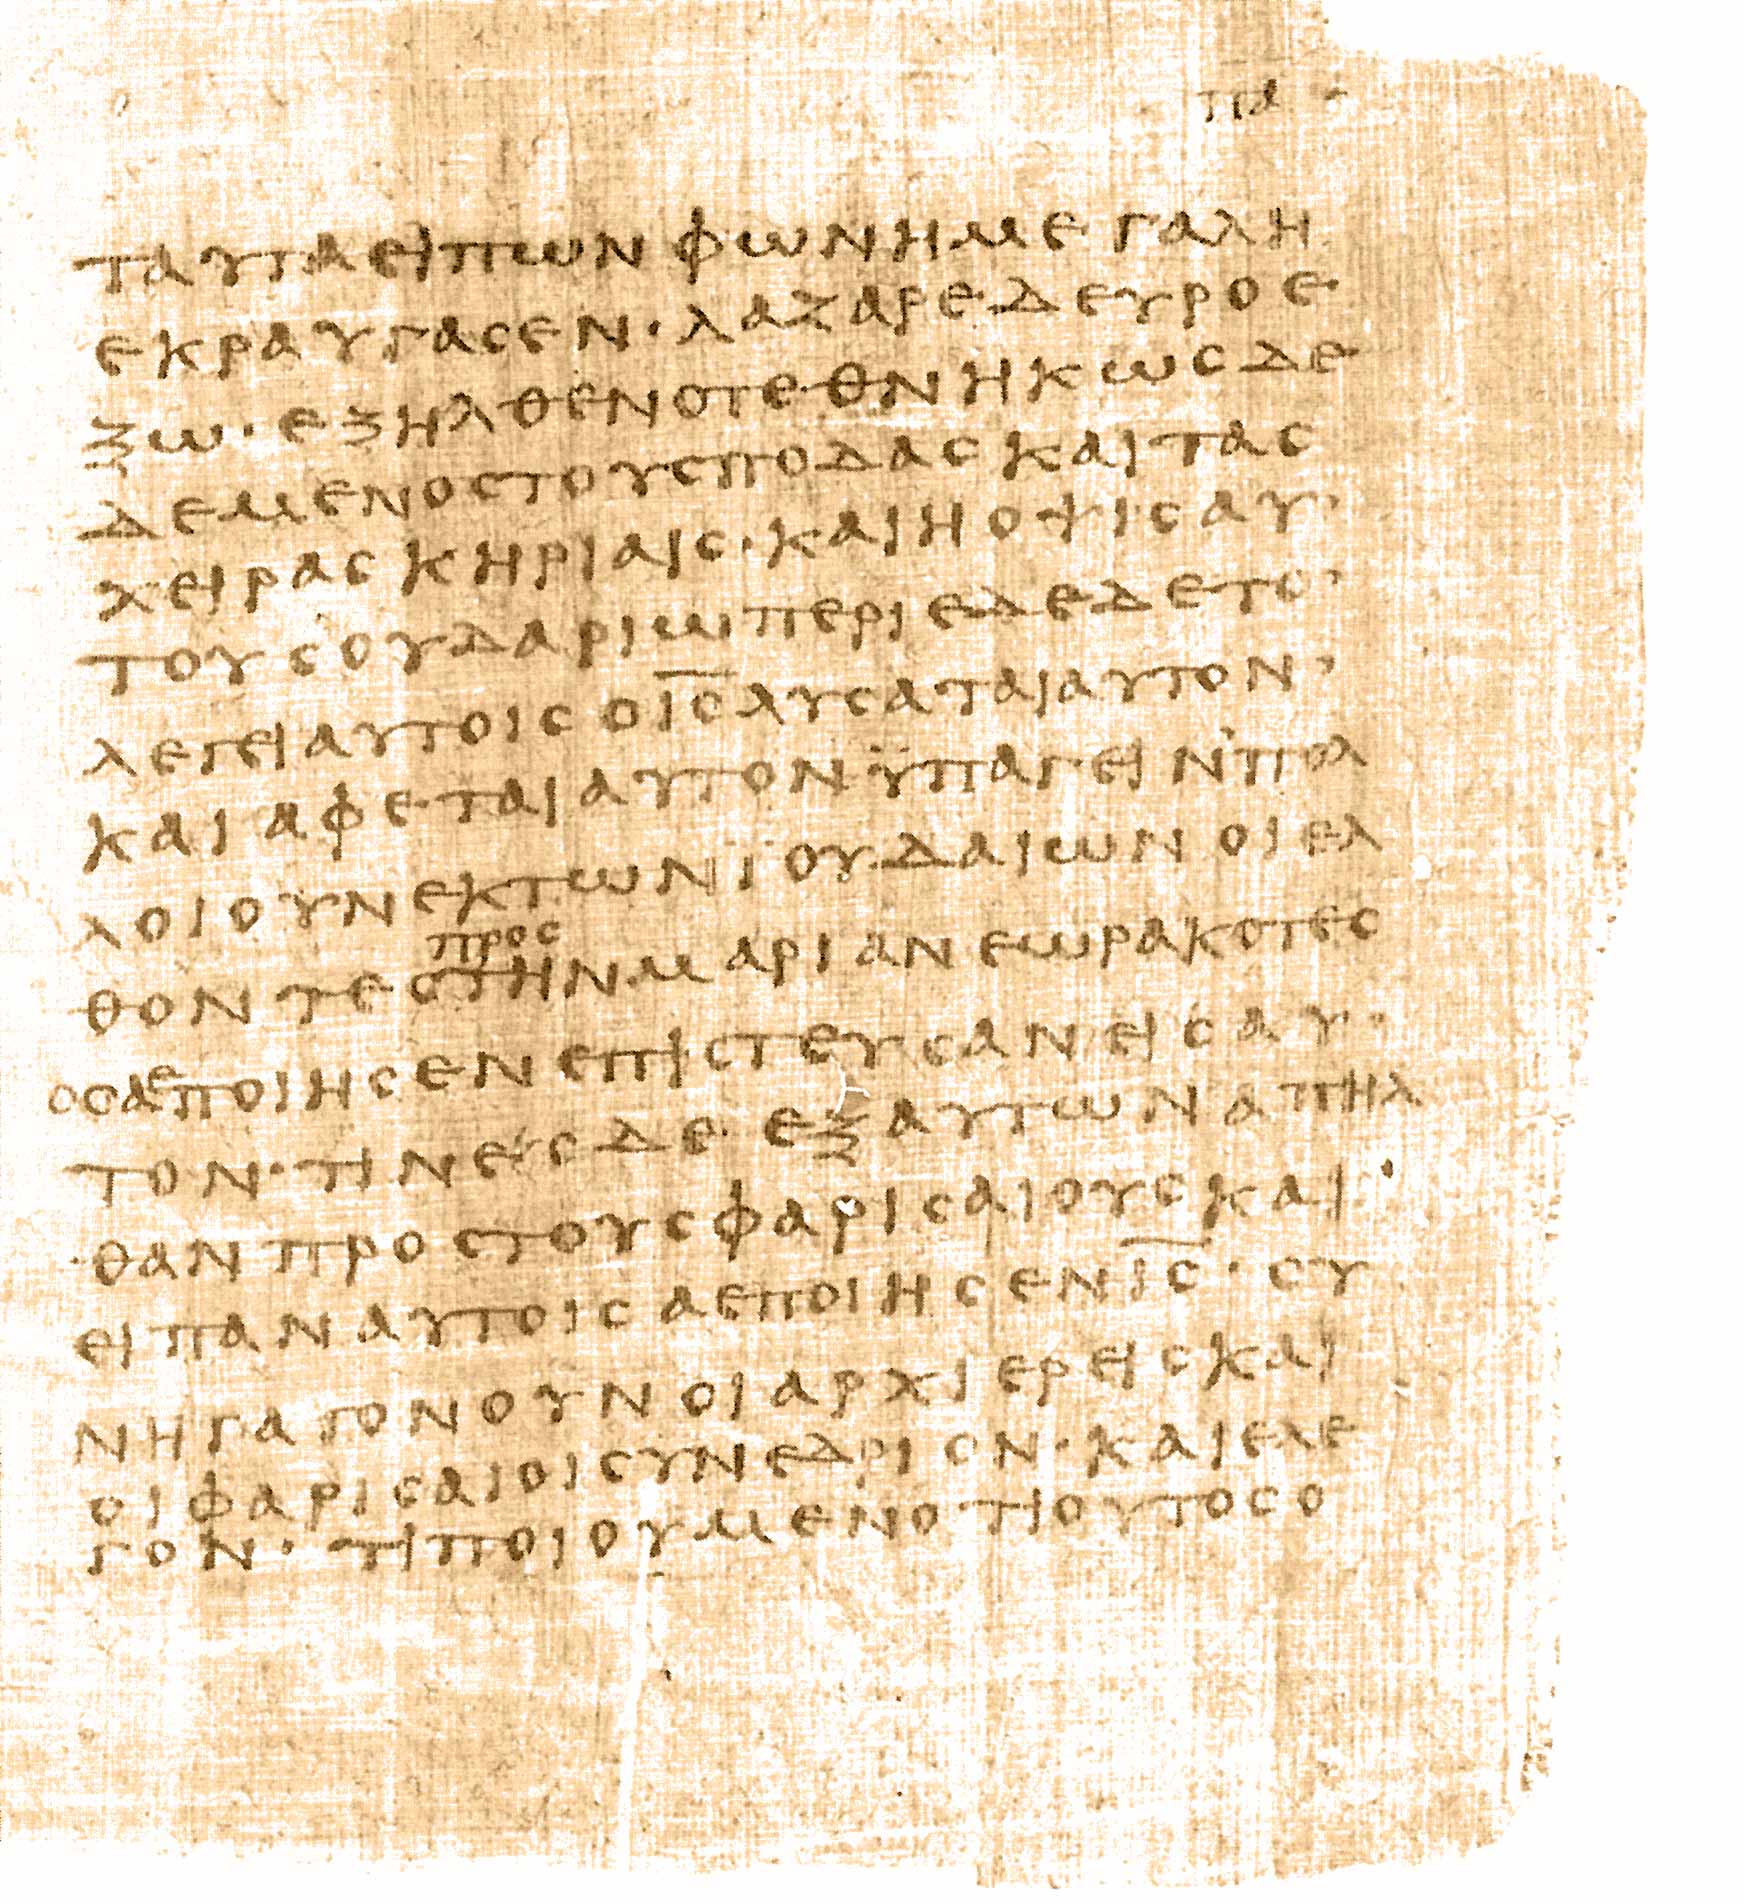 πα
ταυταειπωνφωνημεγαλη
εκραυγασεν·λαζαρεδευροε
ξω·εξηλθενοτεθνηκωςδε
δεμενοςτουςποδαςκαιτας
χειραςκηριαις·καιηοψιςαυ
τουσουδαριωπεριεδεδετο
λεγειαυτοιςοις̅λυσαταιαυτον·
καιαφεταιαυτονϋπαγειν᾿πολ
λοιουνεκτωνϊουδαιωνοιελ
προς
θοντεςτηνμαριανεωρακοτες
ε
οσαποιησενεπιστευσανειςαυ
τον·τινεςδεεξαυτωναπηλ
θανπροςτουςφαρισαιουςκαι
ειπαναυτοιςαεποιησενι̅ς̅·συ
νηγαγονουνοιαρχιερειςκαι
οιφαρισαιοισυνεδριον·καιελε
γον·τιποιουμενοτιουτοςο